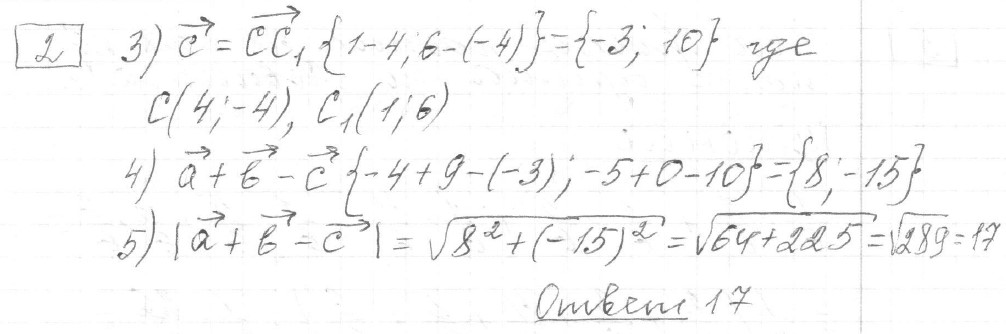 2 3) c⃗ = CC₁⃗ {1-4; 6-(-4)} = {-3; 10} где
C(4;-4), C₁(1;6)
4) a⃗ + в⃗ - c⃗ {-4+9-(-3); -5+0-10} = {8; -15}
5) |a⃗ + в⃗ - c⃗| = √(8² + (-15)²) = √(64+225) = √289 = 17
Ответ 17